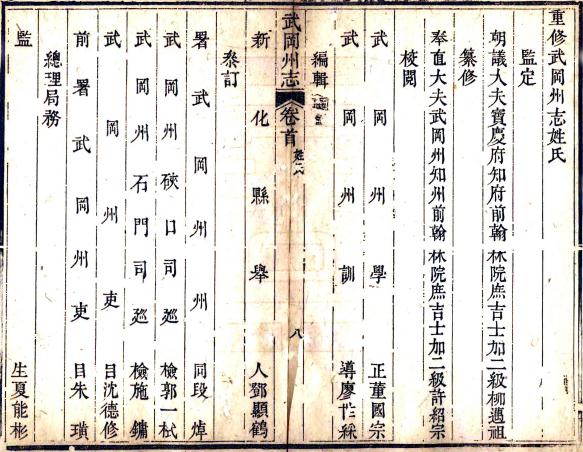 重修武岡州志姓氏
監定
朝議大夫寶慶府知府前翰林院庶吉士加二級柳邁祖
纂修
奉直大夫武岡州知州前翰林院庶吉士加二級許紹宗
校閱
武岡州學正董國宗
武岡州訓導廖 綵
編輯
武岡州志 卷首 姓氏 八
新化縣舉人鄧顯鶴
叅訂
署武岡州州同段焯
武岡州硤口司廵檢郭一栻
武岡州石門司廵檢施鏞
武岡州吏目沈德修
前署武岡州吏目朱璜
總理局務
監生夏能彬